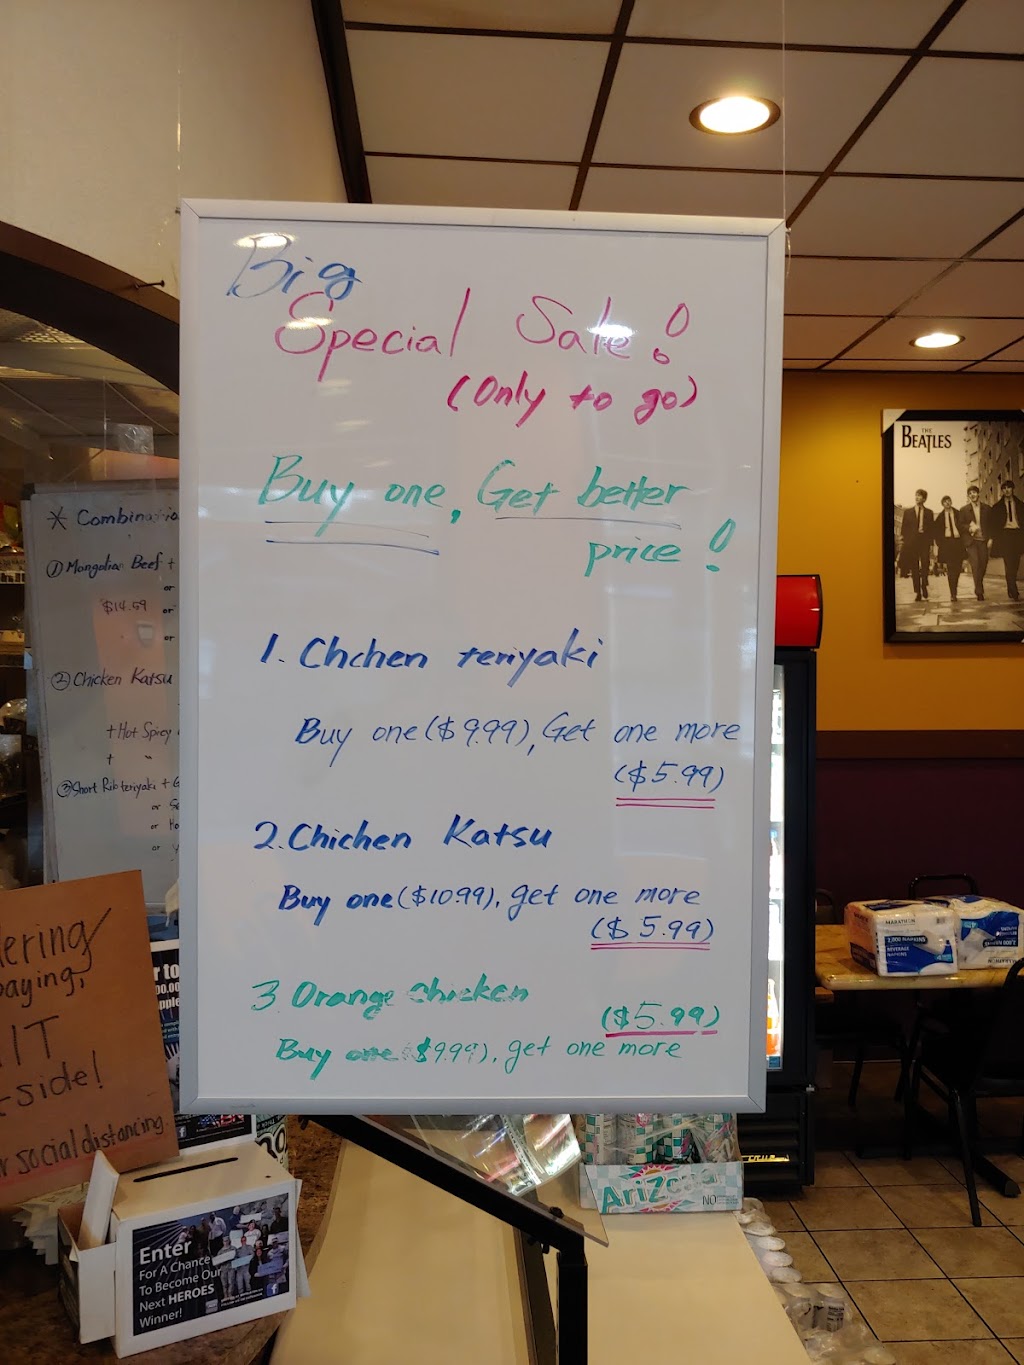 Big
Special Sale!
(Only to go)
Buy one, Get better
price!
1. Chchen teriyaki
Buy one ($9.99), Get one more
($5.99)
2. Chichen Katsu
Buy one ($10.99), get one more
($5.99)
3. Orange chicken
($5.99)
Buy one ($9.99), get one more
* Combinatio
① Mongolian Beef +
or
$14.59 or
or
② Chicken Katsu
+ Hot Spicy
+ "
③ Short Rib teriyaki + G
or
or Ho
or
dering
paying,
IT
-side!
r social distancing.
r to
00.00
pple
Enter
For A Chance
To Become Our
Next HEROES
Winner!
AriZona
NO
THE
BEATLES
MARATHON
BEVERAGE
NAPKINS
MARATHON